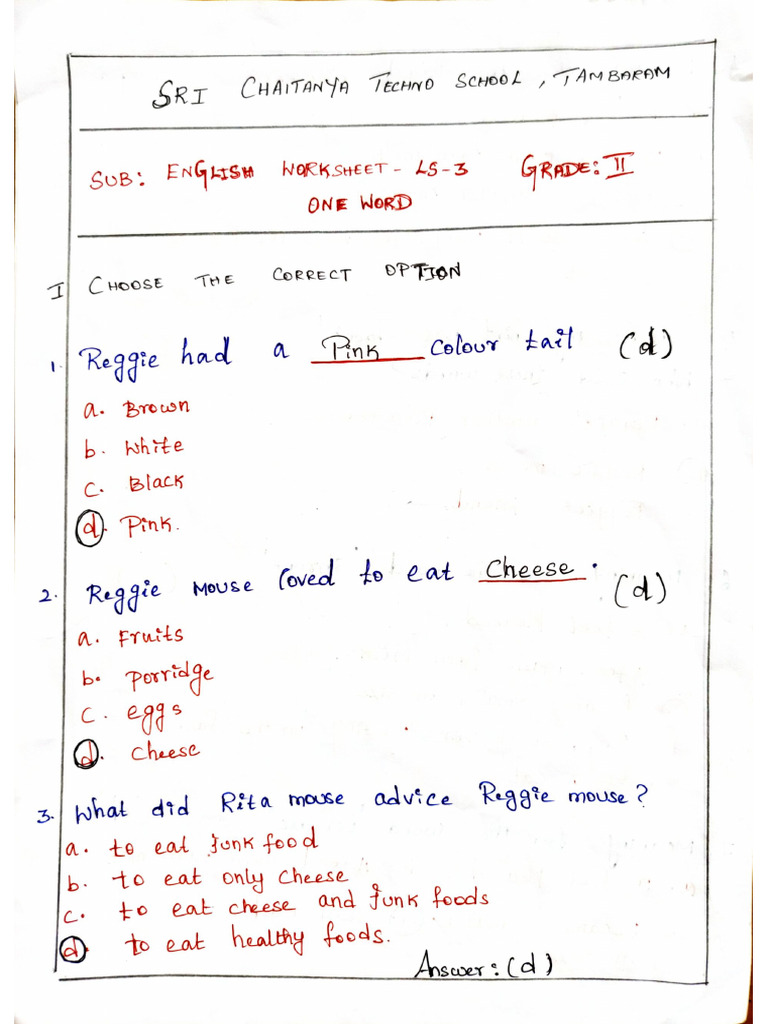 SRI CHAITANYA TECHNO SCHOOL, TAMBARAM
SUB: ENGLISH WORKSHEET - LS-3 GRADE: II
ONE WORD
I CHOOSE THE CORRECT OPTION
1. Reggie had a Pink colour tail (d)
a. Brown
b. White
c. Black
d. Pink.
2. Reggie mouse loved to eat Cheese. (d)
a. Fruits
b. Porridge
c. eggs
d. cheese
3. What did Rita mouse advice Reggie mouse?
a. to eat junk food
b. to eat only cheese
c. to eat cheese and junk foods
d. to eat healthy foods.
Answer: (d)